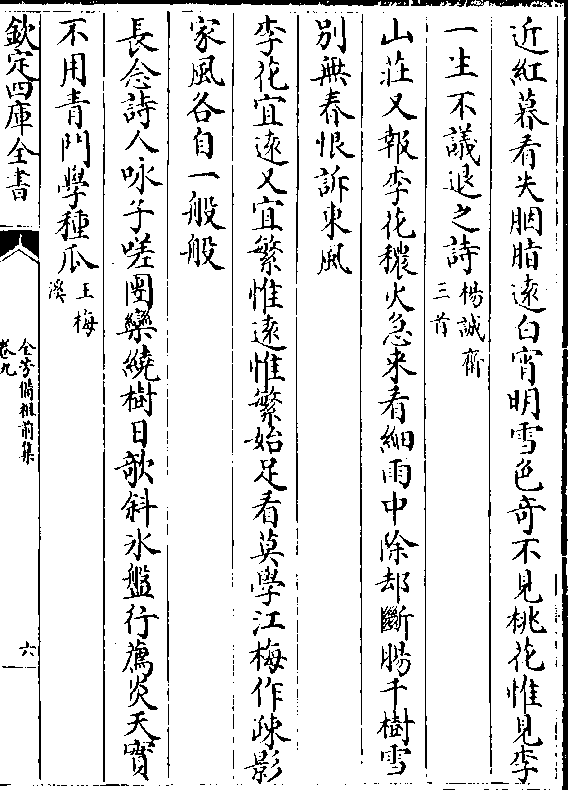 近紅暮看失胭脂遠白宵明雪色奇不見桃花惟見李
一生不議退之詩楊誠齋三首
山莊又報李花穠火急来看細雨中除却斷腸千樹雪
别無春恨訴東風
李花宜逺又宜繁惟逺惟繁始足看莫學江梅作疎影
家風各自一般般
長念詩人咏子嗟團欒繞樹日欹斜氷盤行薦炎天實
不用青門學種瓜王梅溪
欽定四庫全書
全芳備祖前集
卷九
六